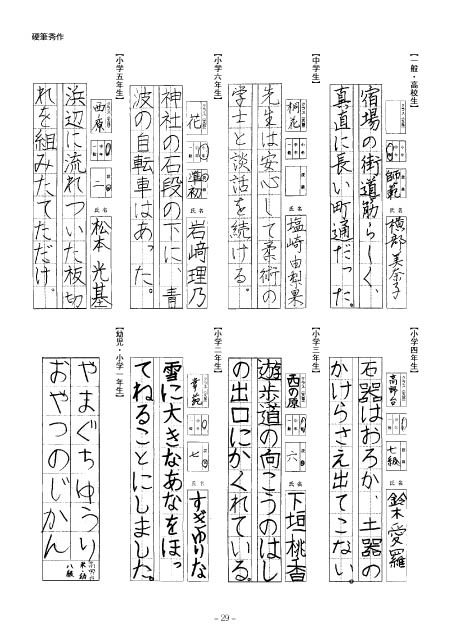 硬筆秀作
【一般・高校生】
宿場の街道筋らしく、
真直に長い町通だった。
師範
氏名
横部美奈子
【中学生】
先生は安心して柔術の
学士と談話を続ける。
桐花
氏名
塩崎由梨果
【小学六年生】
神社の石段の下に、青
波の自転車はあった。
花
氏名
岩﨑理乃
【小学五年生】
浜辺に流れついた板切
れを組みたてただけ。
西原
二
氏名
松本光基
【小学四年生】
石器はおろか、土器の
かけらさえ出てこない。
高野台
七級
氏名
鈴木愛羅
【小学三年生】
遊歩道の向こうのはし
の出口にかくれている。
西の原
六
氏名
下垣桃香
【小学二年生】
雪に大きなあなをほっ
てねることにしました。
七
氏名
すぎゆりな
【幼児・小学一年生】
やまぐちゆうり
おやつのじかん
八級
- 29 -